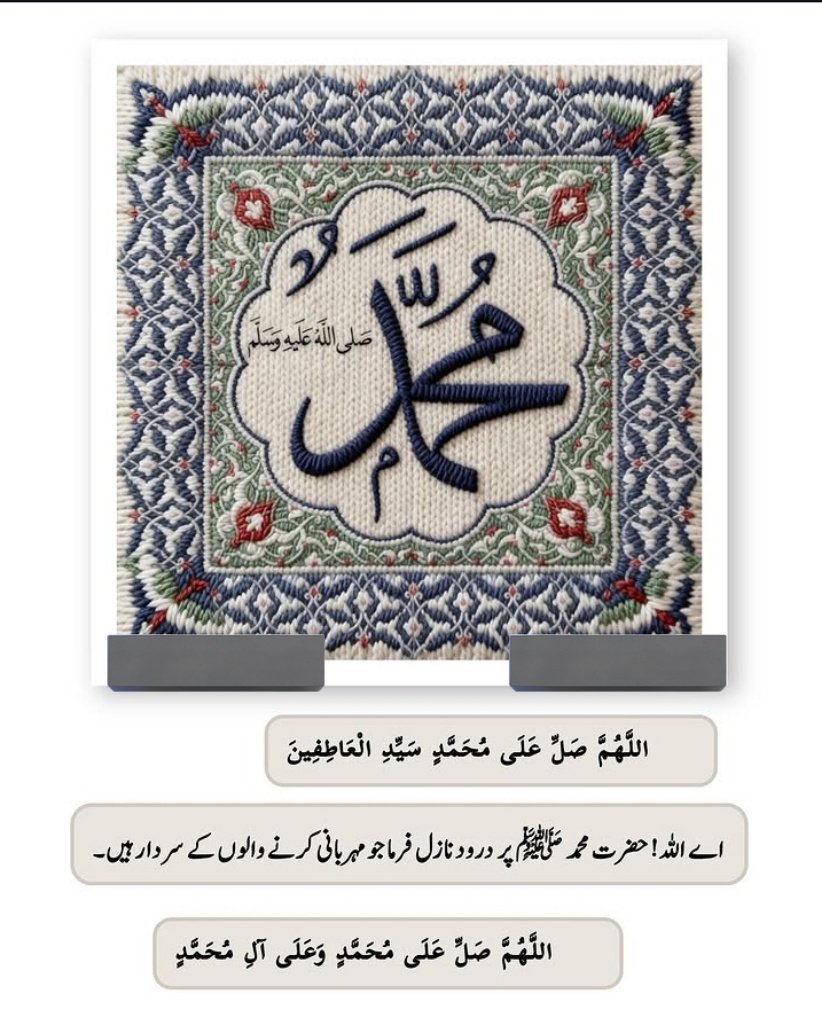 محمد
صَلى اللَّهُ عَلَيهِ وَسَلَّم
اللَّهُمَّ صَلِّ عَلَى مُحَمَّدٍ سَيِّدِ الْعَاطِفِينَ
اے اللہ! حضرت محمد ﷺ پر درود نازل فرما جو مہربانی کرنے والوں کے سردار ہیں۔
اللَّهُمَّ صَلِّ عَلَى مُحَمَّدٍ وَعَلَى آلِ مُحَمَّدٍ